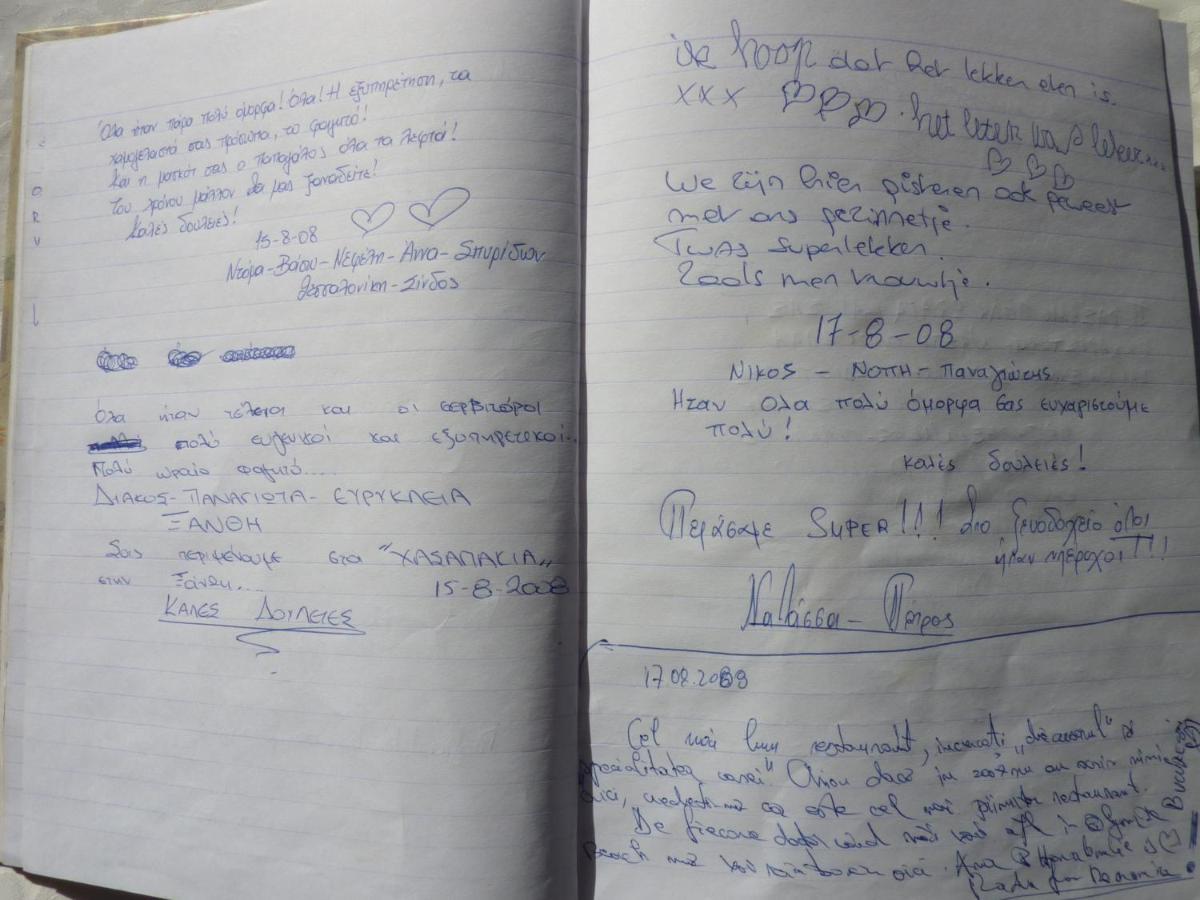 Όλα ήταν πάρα πολύ όμορφα! Όλα! Η εξυπηρέτηση, τα
χαμογελαστά σας πρόσωπα, το φαγητό!
Και η μασκότ σας ο παπαγάλος όλα τα λεφτά!
Του χρόνου μάλλον θα μας ξαναδείτε!
Καλές δουλειές!
15-8-08
Ντόρα-Βάσω-Νεφέλη-Άννα-Σπυρίδων
Θεσσαλονίκη-Σίνδος
Όλα ήταν τέλεια και οι σερβιτόροι
πολύ ευγενικοί και εξυπηρετικοί..
Πολύ ωραίο φαγητό....
ΔΙΑΚΟΣ-ΠΑΝΑΓΙΩΤΑ-ΕΥΡΥΚΛΕΙΑ
ΞΑΝΘΗ
Σας περιμένουμε στα "ΧΑΣΑΠΑΚΙΑ"
στην Ξάνθη.... 15-8-2008
ΚΑΛΕΣ ΔΟΥΛΕΙΕΣ
ik hoop dat het lekken eten is.
xxx het eten was
We zijn hier gisteren ook geweest
met ons gezinnetje.
Twas superlekken.
Zoals men vrouwtje.
17-8-08
ΝΙΚΟΣ - ΝΟΠΗ - Παναγιώτης
Ήταν όλα πολύ όμορφα σας ευχαριστούμε
πολύ!
καλές δουλειές!
Περάσαμε SUPER!!! Στο ξενοδοχείο όλοι
ήταν υπέροχοι!!!
Νατάσσα - Πέτρος
17.08.2008
Cel mai bun restaurant, incercati
specialitatea casei"
aici, este cel mai restaurant.
De fiecare data cand
Beach Ana &
Radu from Romania